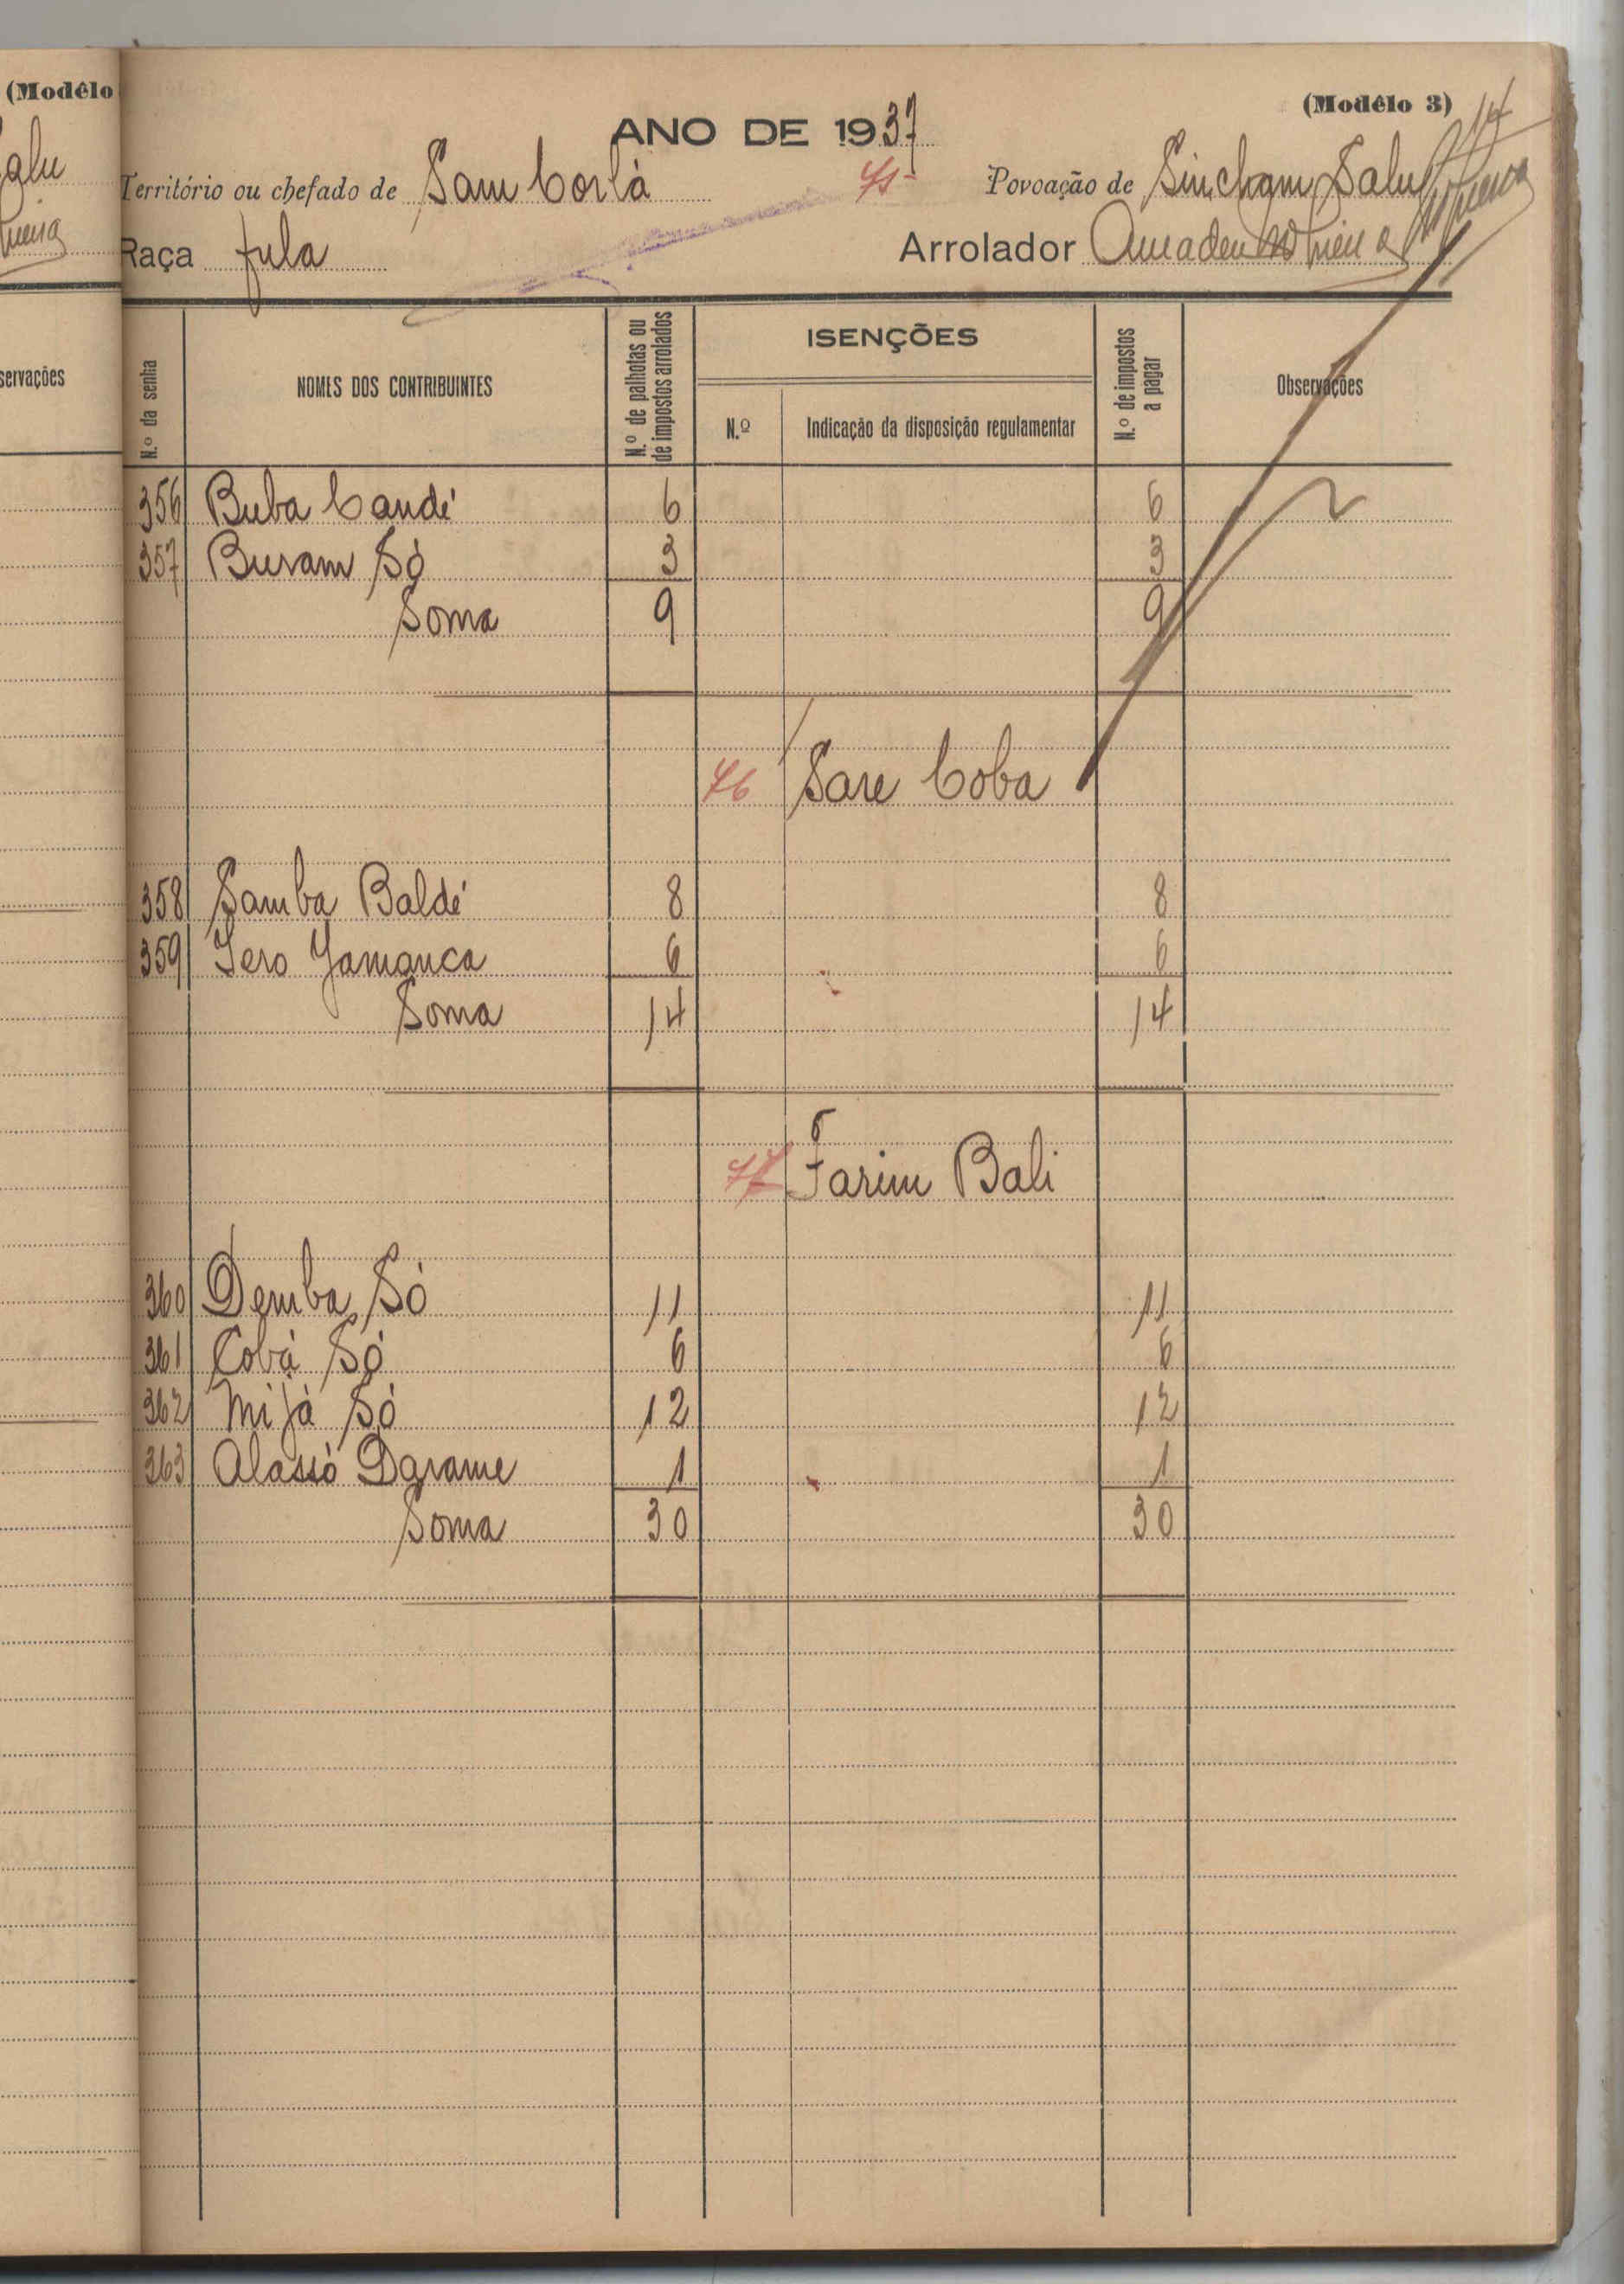 (Modêlo
(Modêlo 3)
14
ANO DE 1937
alu
Território ou chefado de Sam Corlà
45
Povoação de Sincham Salu
Raça fula
Arrolador Amadeu
servações
N.º da senha
NOMES DOS CONTRIBUINTES
N.º de palhotas ou de impostos arrolados
ISENÇÕES
N.º
Indicação da disposição regulamentar
N.º de impostos a pagar
Observações
356 Buba Candé 6 6
357 Buram Só 3 3
Soma 9 9
46 Sare Coba
358 Samba Baldé 8 8
359 Iero Jamanca 6 6
Soma 14 14
47 Farim Bali
360 Demba Só 11 11
361 Cobà Só 6 6
362 Mijà Só 12 12
363 Alassó Darame 1 1
Soma 30 30